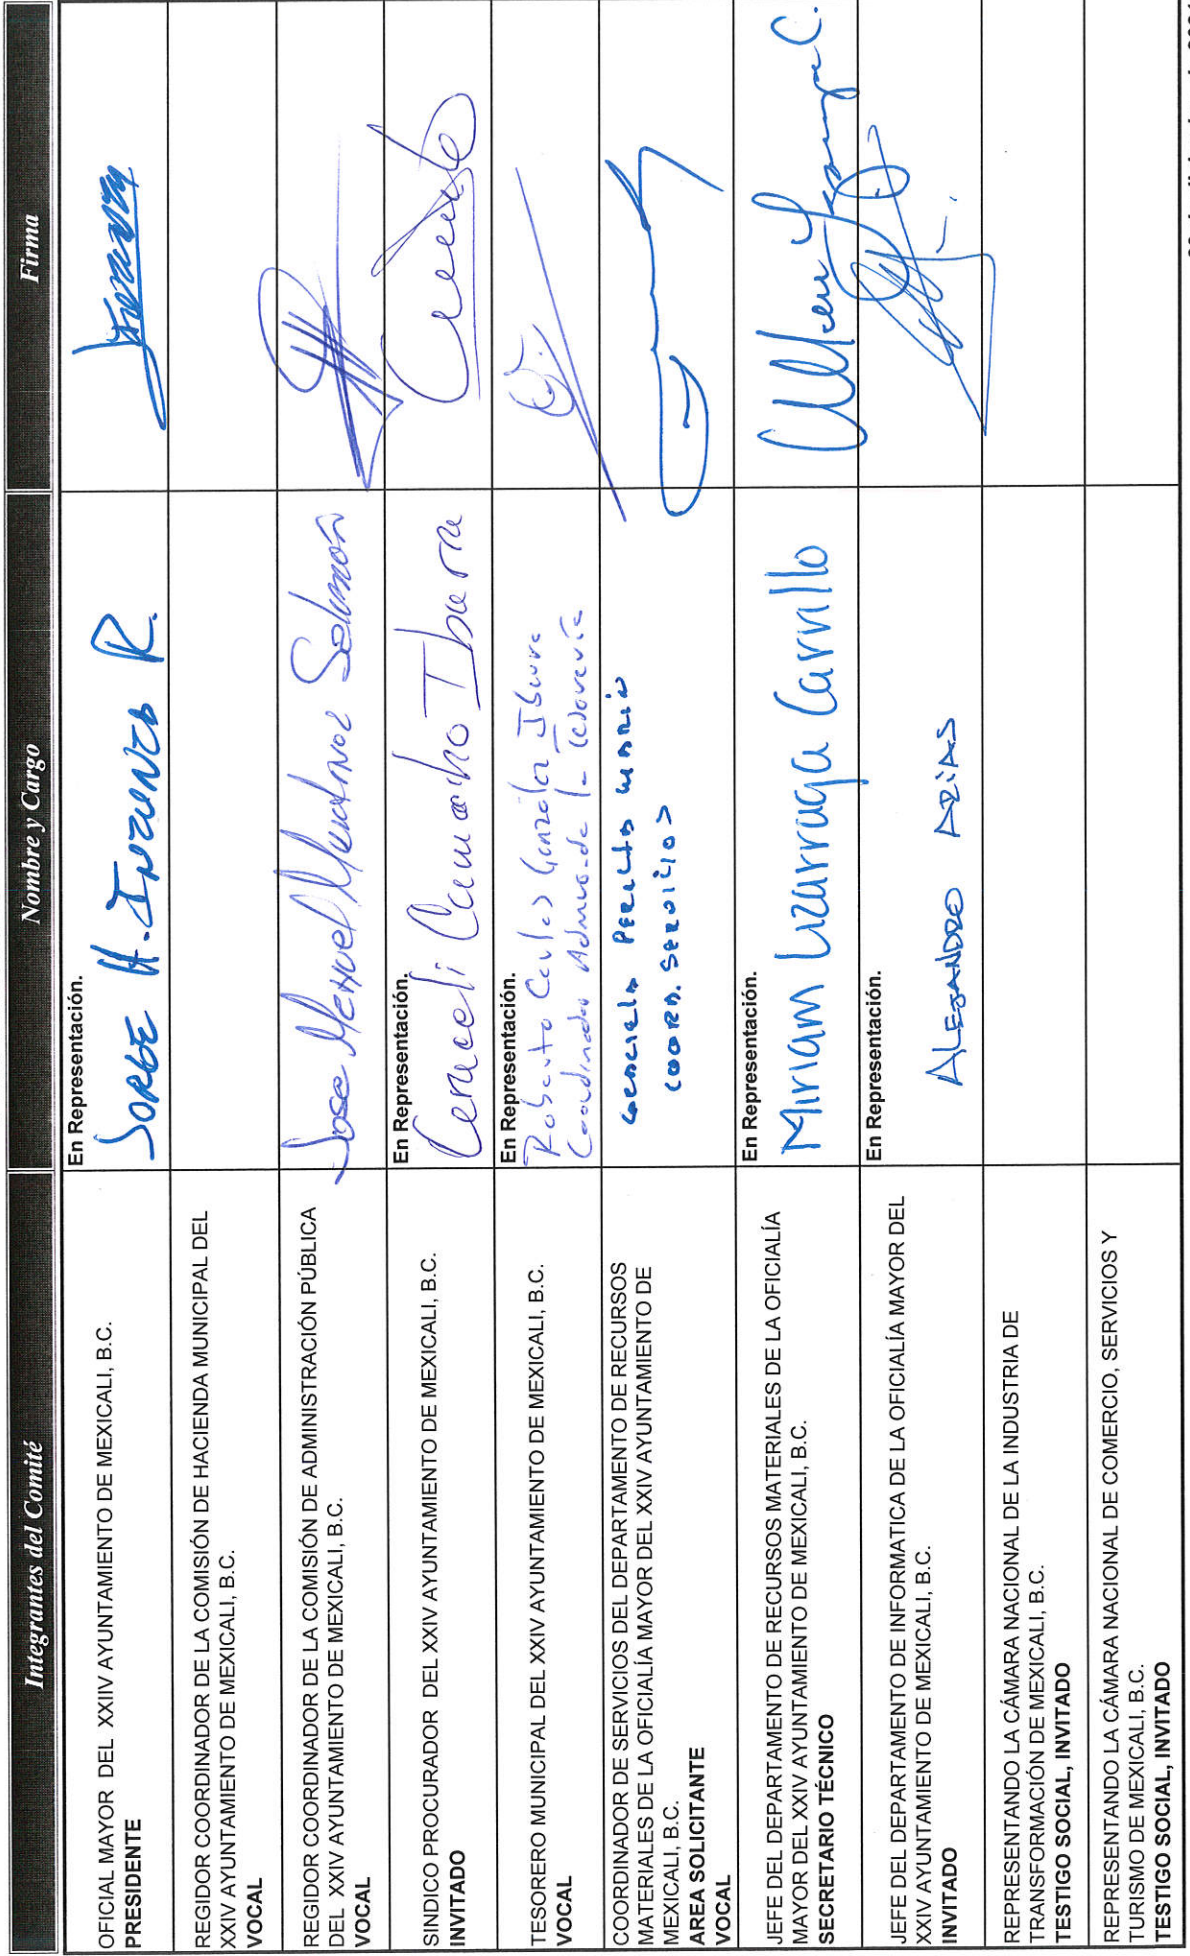 Integrantes del Comité
Nombre y Cargo
Firma
OFICIAL MAYOR DEL XXIIV AYUNTAMIENTO DE MEXICALI, B.C.
PRESIDENTE
En Representación.
JORGE H. INZUNZA R.
REGIDOR COORDINADOR DE LA COMISIÓN DE HACIENDA MUNICIPAL DEL
XXIV AYUNTAMIENTO DE MEXICALI, B.C.
VOCAL
REGIDOR COORDINADOR DE LA COMISIÓN DE ADMINISTRACIÓN PÚBLICA
DEL XXIV AYUNTAMIENTO DE MEXICALI, B.C.
VOCAL
Jose Manuel Martinez Salomón
SINDICO PROCURADOR DEL XXIV AYUNTAMIENTO DE MEXICALI, B.C.
INVITADO
En Representación.
Camacho Ibarra
TESORERO MUNICIPAL DEL XXIV AYUNTAMIENTO DE MEXICALI, B.C.
VOCAL
En Representación.
Roberto Carlos González Ibarra
Coordinador Admvo. de la tesorería
COORDINADOR DE SERVICIOS DEL DEPARTAMENTO DE RECURSOS
MATERIALES DE LA OFICIALÍA MAYOR DEL XXIV AYUNTAMIENTO DE
MEXICALI, B.C.
AREA SOLICITANTE
VOCAL
Graciela Peralta Marin
COORD. SERVICIOS
JEFE DEL DEPARTAMENTO DE RECURSOS MATERIALES DE LA OFICIALÍA
MAYOR DEL XXIV AYUNTAMIENTO DE MEXICALI, B.C.
SECRETARIO TÉCNICO
En Representación.
Miriam Lizarraga Carrillo
JEFE DEL DEPARTAMENTO DE INFORMATICA DE LA OFICIALÍA MAYOR DEL
XXIV AYUNTAMIENTO DE MEXICALI, B.C.
INVITADO
En Representación.
ALEJANDRO ARIAS
REPRESENTANDO LA CÁMARA NACIONAL DE LA INDUSTRIA DE
TRANSFORMACIÓN DE MEXICALI, B.C.
TESTIGO SOCIAL, INVITADO
REPRESENTANDO LA CÁMARA NACIONAL DE COMERCIO, SERVICIOS Y
TURISMO DE MEXICALI, B.C.
TESTIGO SOCIAL, INVITADO